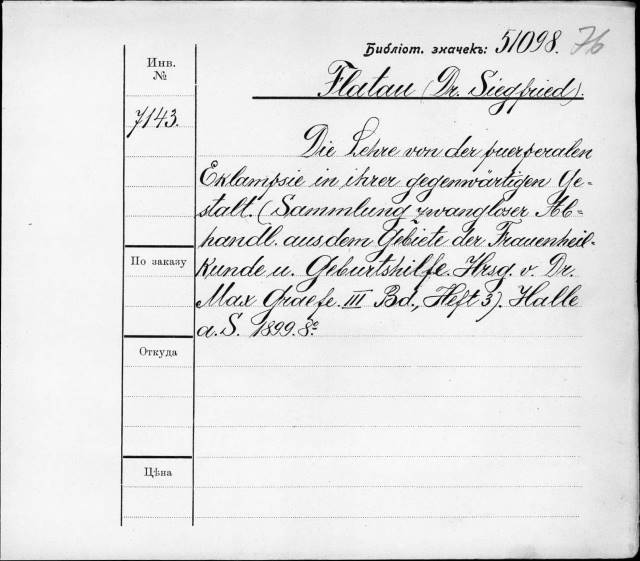 Библіот. значекъ: 51098. 76
Flatau (Dr. Siegfried).
Инв.
№
7143.
Die Lehre von der puerperalen
Eklampsie in ihrer gegenwärtigen Ge-
stalt. (Sammlung zwangloser Ab-
handl. aus dem Gebiete der Frauenheil-
kunde u. Geburtshilfe. Hrsg. v. Dr.
Max Graefe. III Bd., Heft 3). Halle
a. S. 1899. 8º.
По заказу
Откуда
Цѣна